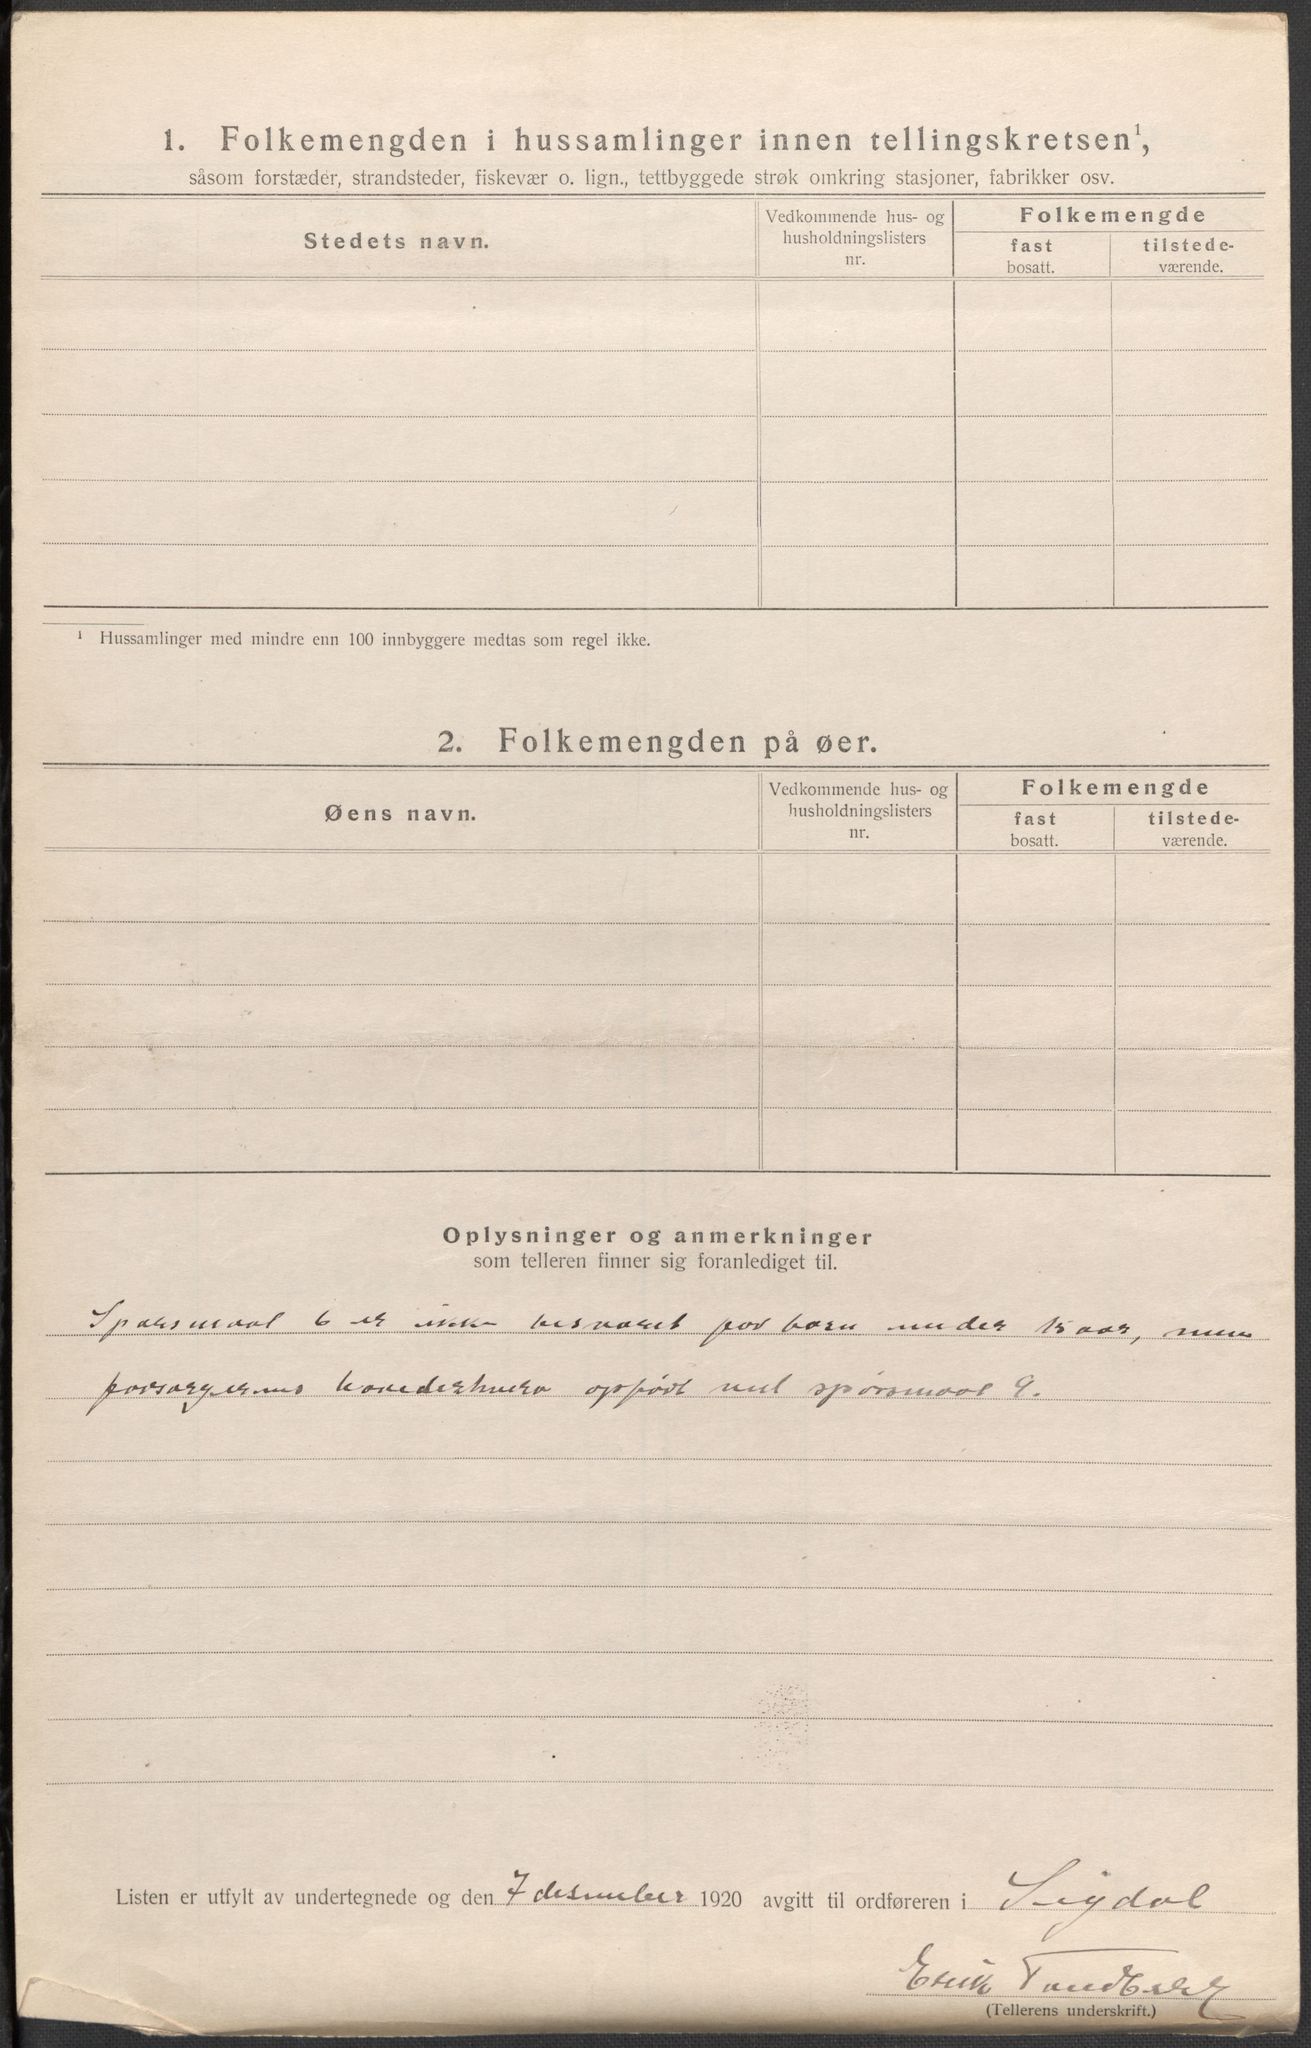 1. Folkemengden i hussamlinger innen tellingskretsen¹,
såsom forstæder, strandsteder, fiskevær o. lign., tettbyggede strøk omkring stasjoner, fabrikker osv.
Stedets navn.
Vedkommende hus- og husholdningslisters nr.
Folkemengde
fast bosatt.
tilstede-værende.
¹ Hussamlinger med mindre enn 100 innbyggere medtas som regel ikke.
2. Folkemengden på øer.
Øens navn.
Vedkommende hus- og husholdningslisters nr.
Folkemengde
fast bosatt.
tilstede-værende.
Oplysninger og anmerkninger
som telleren finner sig foranlediget til.
Spørsmaal 6 er ikke besvaret for børn under 15 aar, men
forsørgerens hovederhverv opført ved spørsmaal 9.
Listen er utfylt av undertegnede og den 7 desember 1920 avgitt til ordføreren i Sigdal
Erik Tandberg
(Tellerens underskrift.)